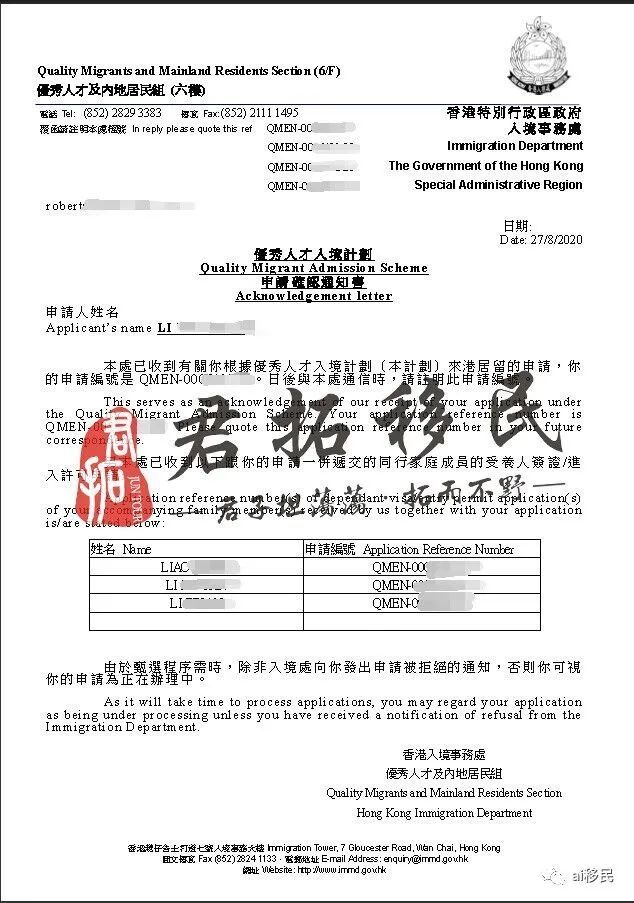 Quality Migrants and Mainland Residents Section (6/F)
優秀人才及內地居民組 (六樓)
電話 Tel: (852) 2829 3383 傳真 Fax:(852) 2111 1495
覆函請註明本處檔號 In reply please quote this ref QMEN-00
QMEN-00
QMEN-00
QMEN-0
香港特別行政區政府
入境事務處
Immigration Department
The Government of the Hong Kong
Special Administrative Region
robert
日期:
Date: 27/8/2020
優秀人才入境計劃
Quality Migrant Admission Scheme
申請確認通知書
Acknowledgement letter
申請人姓名
Applicant's name LI
本處已收到有關你根據優秀人才入境計劃〔本計劃〕來港居留的申請，你
的申請編號是 QMEN-000 。日後與本處通信時，請註明此申請編號。
This serves as an acknowledgement of our receipt of your application under
the Quality Migrant Admission Scheme. Your application reference number is
QMEN-0 Please quote this application reference number in your future
correspondence.
本處已收到以下跟你的申請一併遞交的同行家庭成員的受養人簽證/進
入許可
Application reference number(s) of dependant visa/entry permit application(s)
of your accompanying family member(s) received by us together with your application
is/are stated below:
君拓
JUNTUO
君拓移民
君子坦荡荡·拓而不野
姓名 Name 申請編號 Application Reference Number
LIAO QMEN-000
LI QMEN-00
LI QMEN-0
由於甄選程序需時，除非入境處向你發出申請被拒絕的通知，否則你可視
你的申請為正在辦理中。
As it will take time to process applications, you may regard your application
as being under processing unless you have received a notification of refusal from the
Immigration Department.
香港入境事務處
優秀人才及內地居民組
Quality Migrants and Mainland Residents Section
Hong Kong Immigration Department
香港灣仔告士打道七號入境事務大樓 Immigration Tower, 7 Gloucester Road, Wan Chai, Hong Kong
圖文傳真 Fax (852) 2824 1133 · 電郵地址 E-mail Address: enquiry@immd.gov.hk
網址 Website: http://www.immd.gov.hk
ai移民